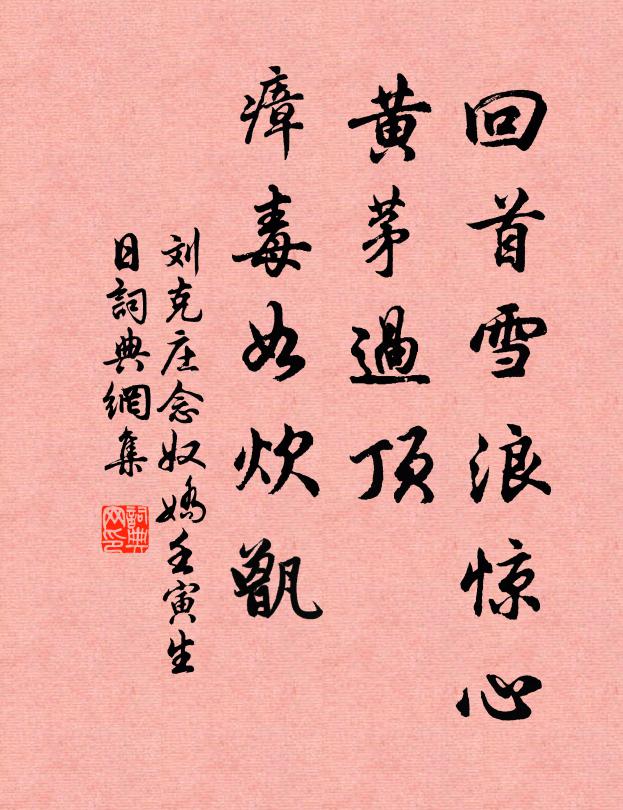 回首雪浪惊心
黄茅過顶
瘴毒如炊甑
刘克庄念奴嬌壬寅生
日詞典網集
詞典
网印